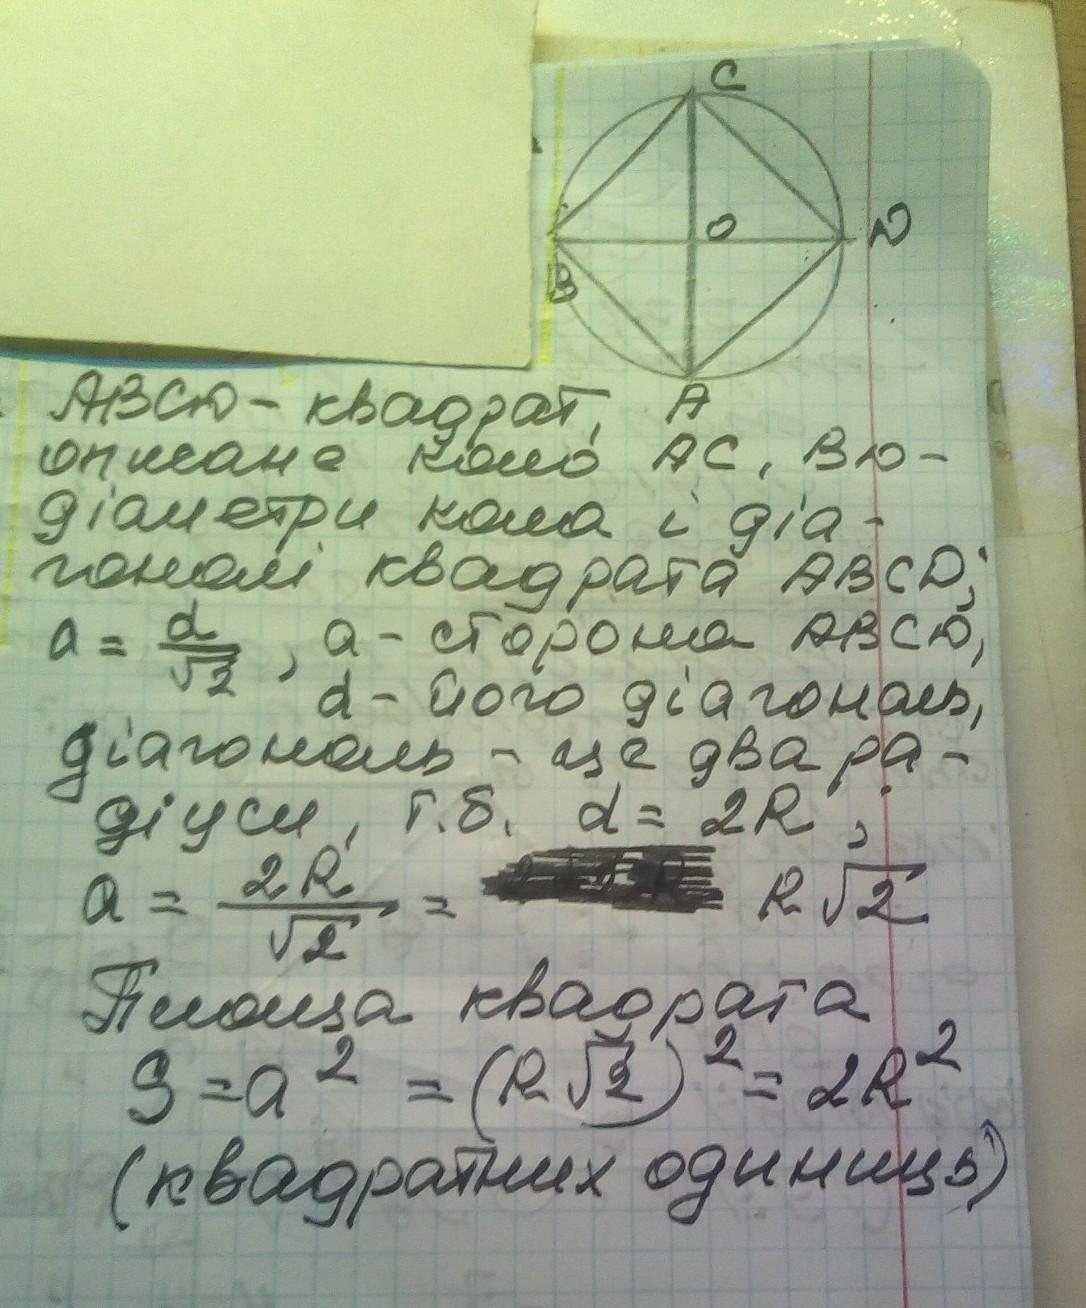 C
O
D
B
ABCD - квадрат, A
описане коло AC, BD -
діаметри кола і діа-
гоналі квадрата ABCD;
a = d/√2, a - сторона ABCD,
d - його діагональ,
діагональ - це два ра-
діуси, т.б. d = 2R;
a = 2R/√2 = R√2
Площа квадрата
S = a² = (R√2)² = 2R²
(квадратних одиниць)